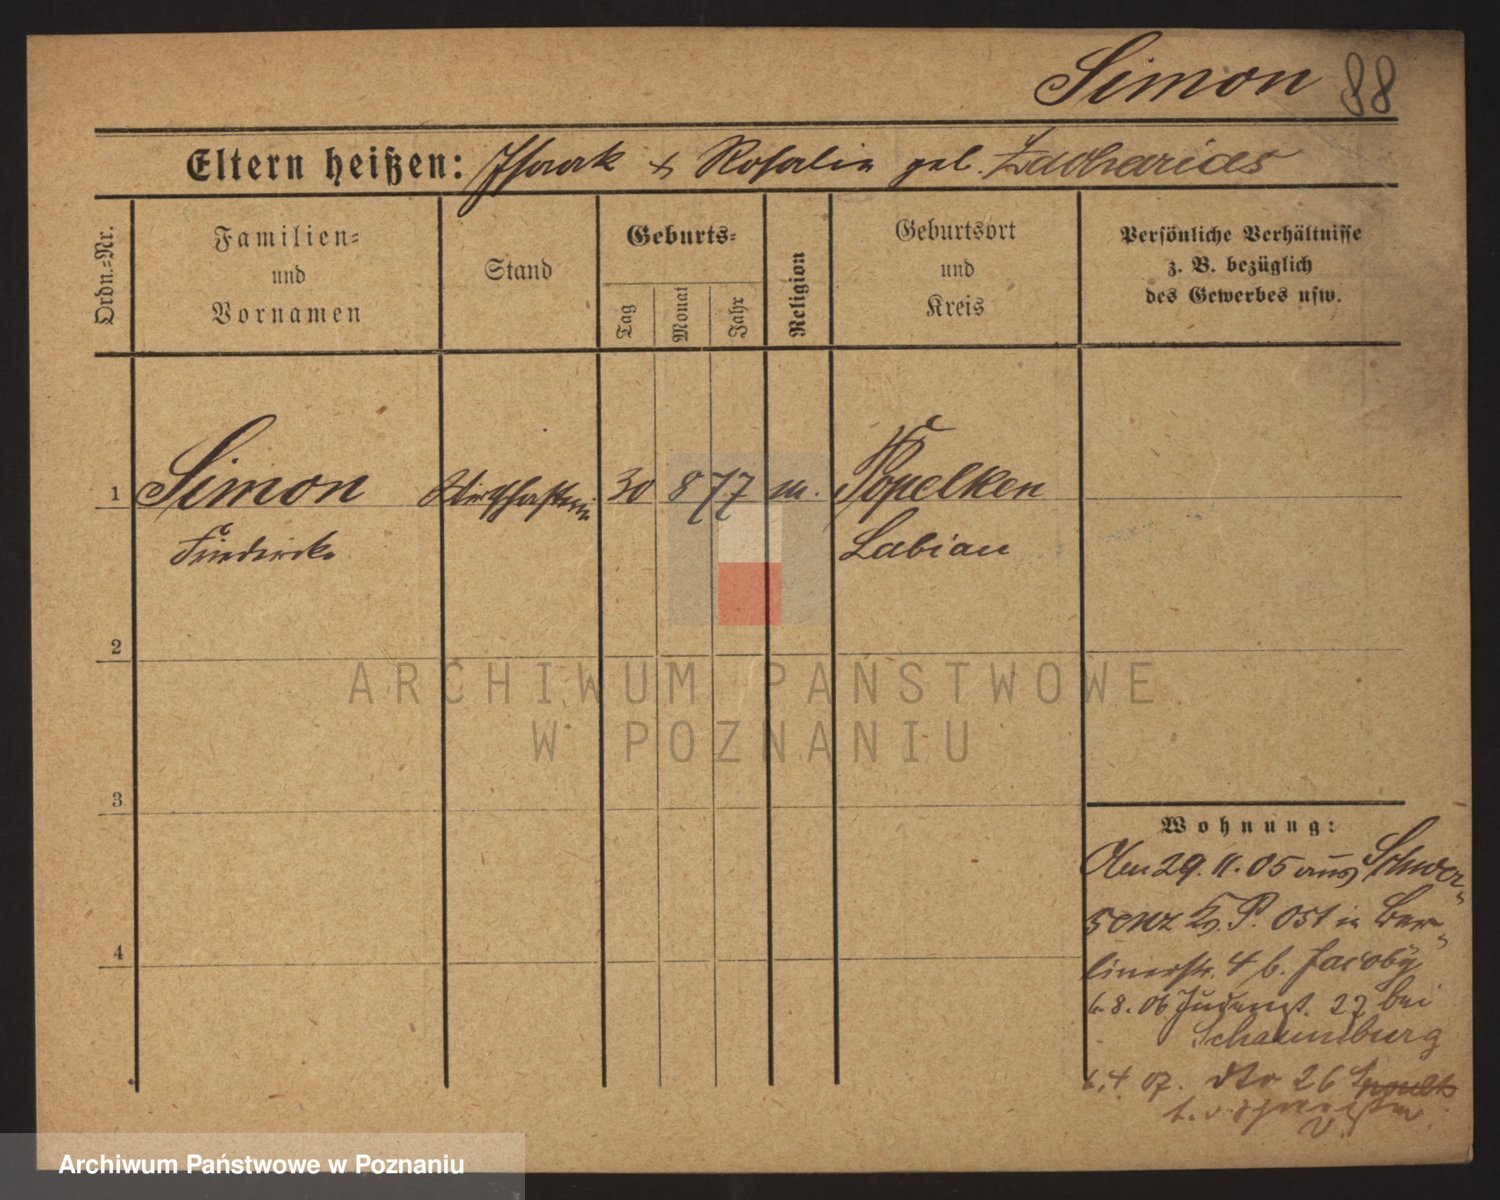 Simon 88
Eltern heißen: Isaak & Rosalie geb. Zacharias
Ordn.-Nr.
Familien-
und
Vornamen
Stand
Geburts-
Tag
Monat
Jahr
Religion
Geburtsort
und
Kreis
Persönliche Verhältnisse
z. B. bezüglich
des Gewerbes usw.
1 Simon Wirthschafterin 30 8 77 m. Popelken
Friederike Labiau
2
3
4
Wohnung:
Den 29. 11. 05 aus Schwer-
senz Kr. P. Ost in Ber-
linerstr. 4 b. Jacoby
6. 8. 06 Judenst. 27 bei
Schaumburg
6. 4. 07. dto 26
ARCHIWUM PAŃSTWOWE
W POZNANIU
Archiwum Państwowe w Poznaniu